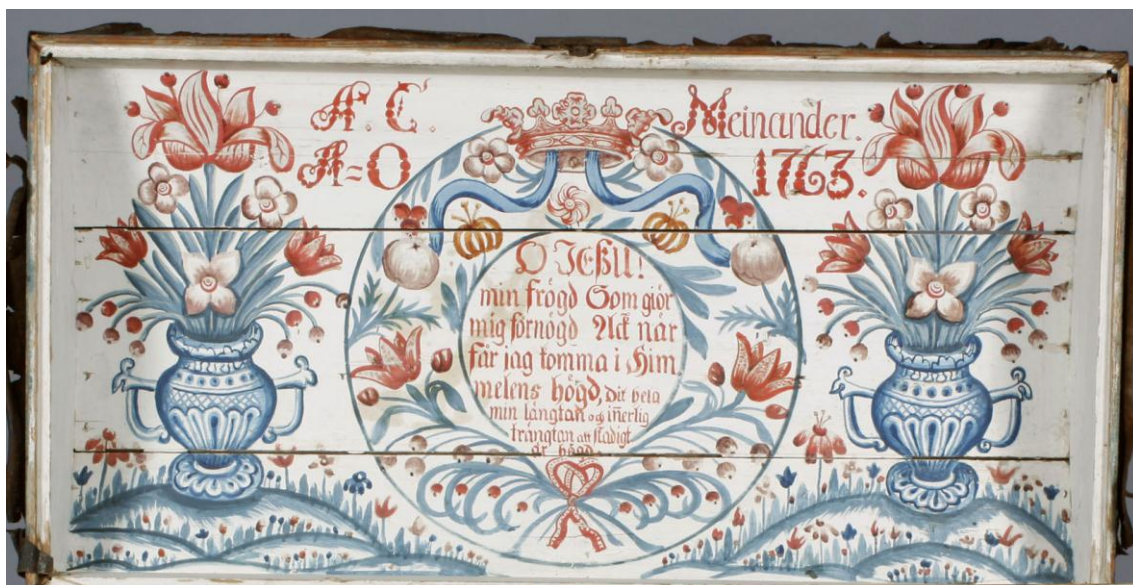 A. C. Meinander.
A=O 1763.
O JEßU!
min frögd Som giör
mig förnögd Ack när
får jag komma i Him
melens högd, dit hela
min längtan och iñerlig
trängtan att stadigt
är högd